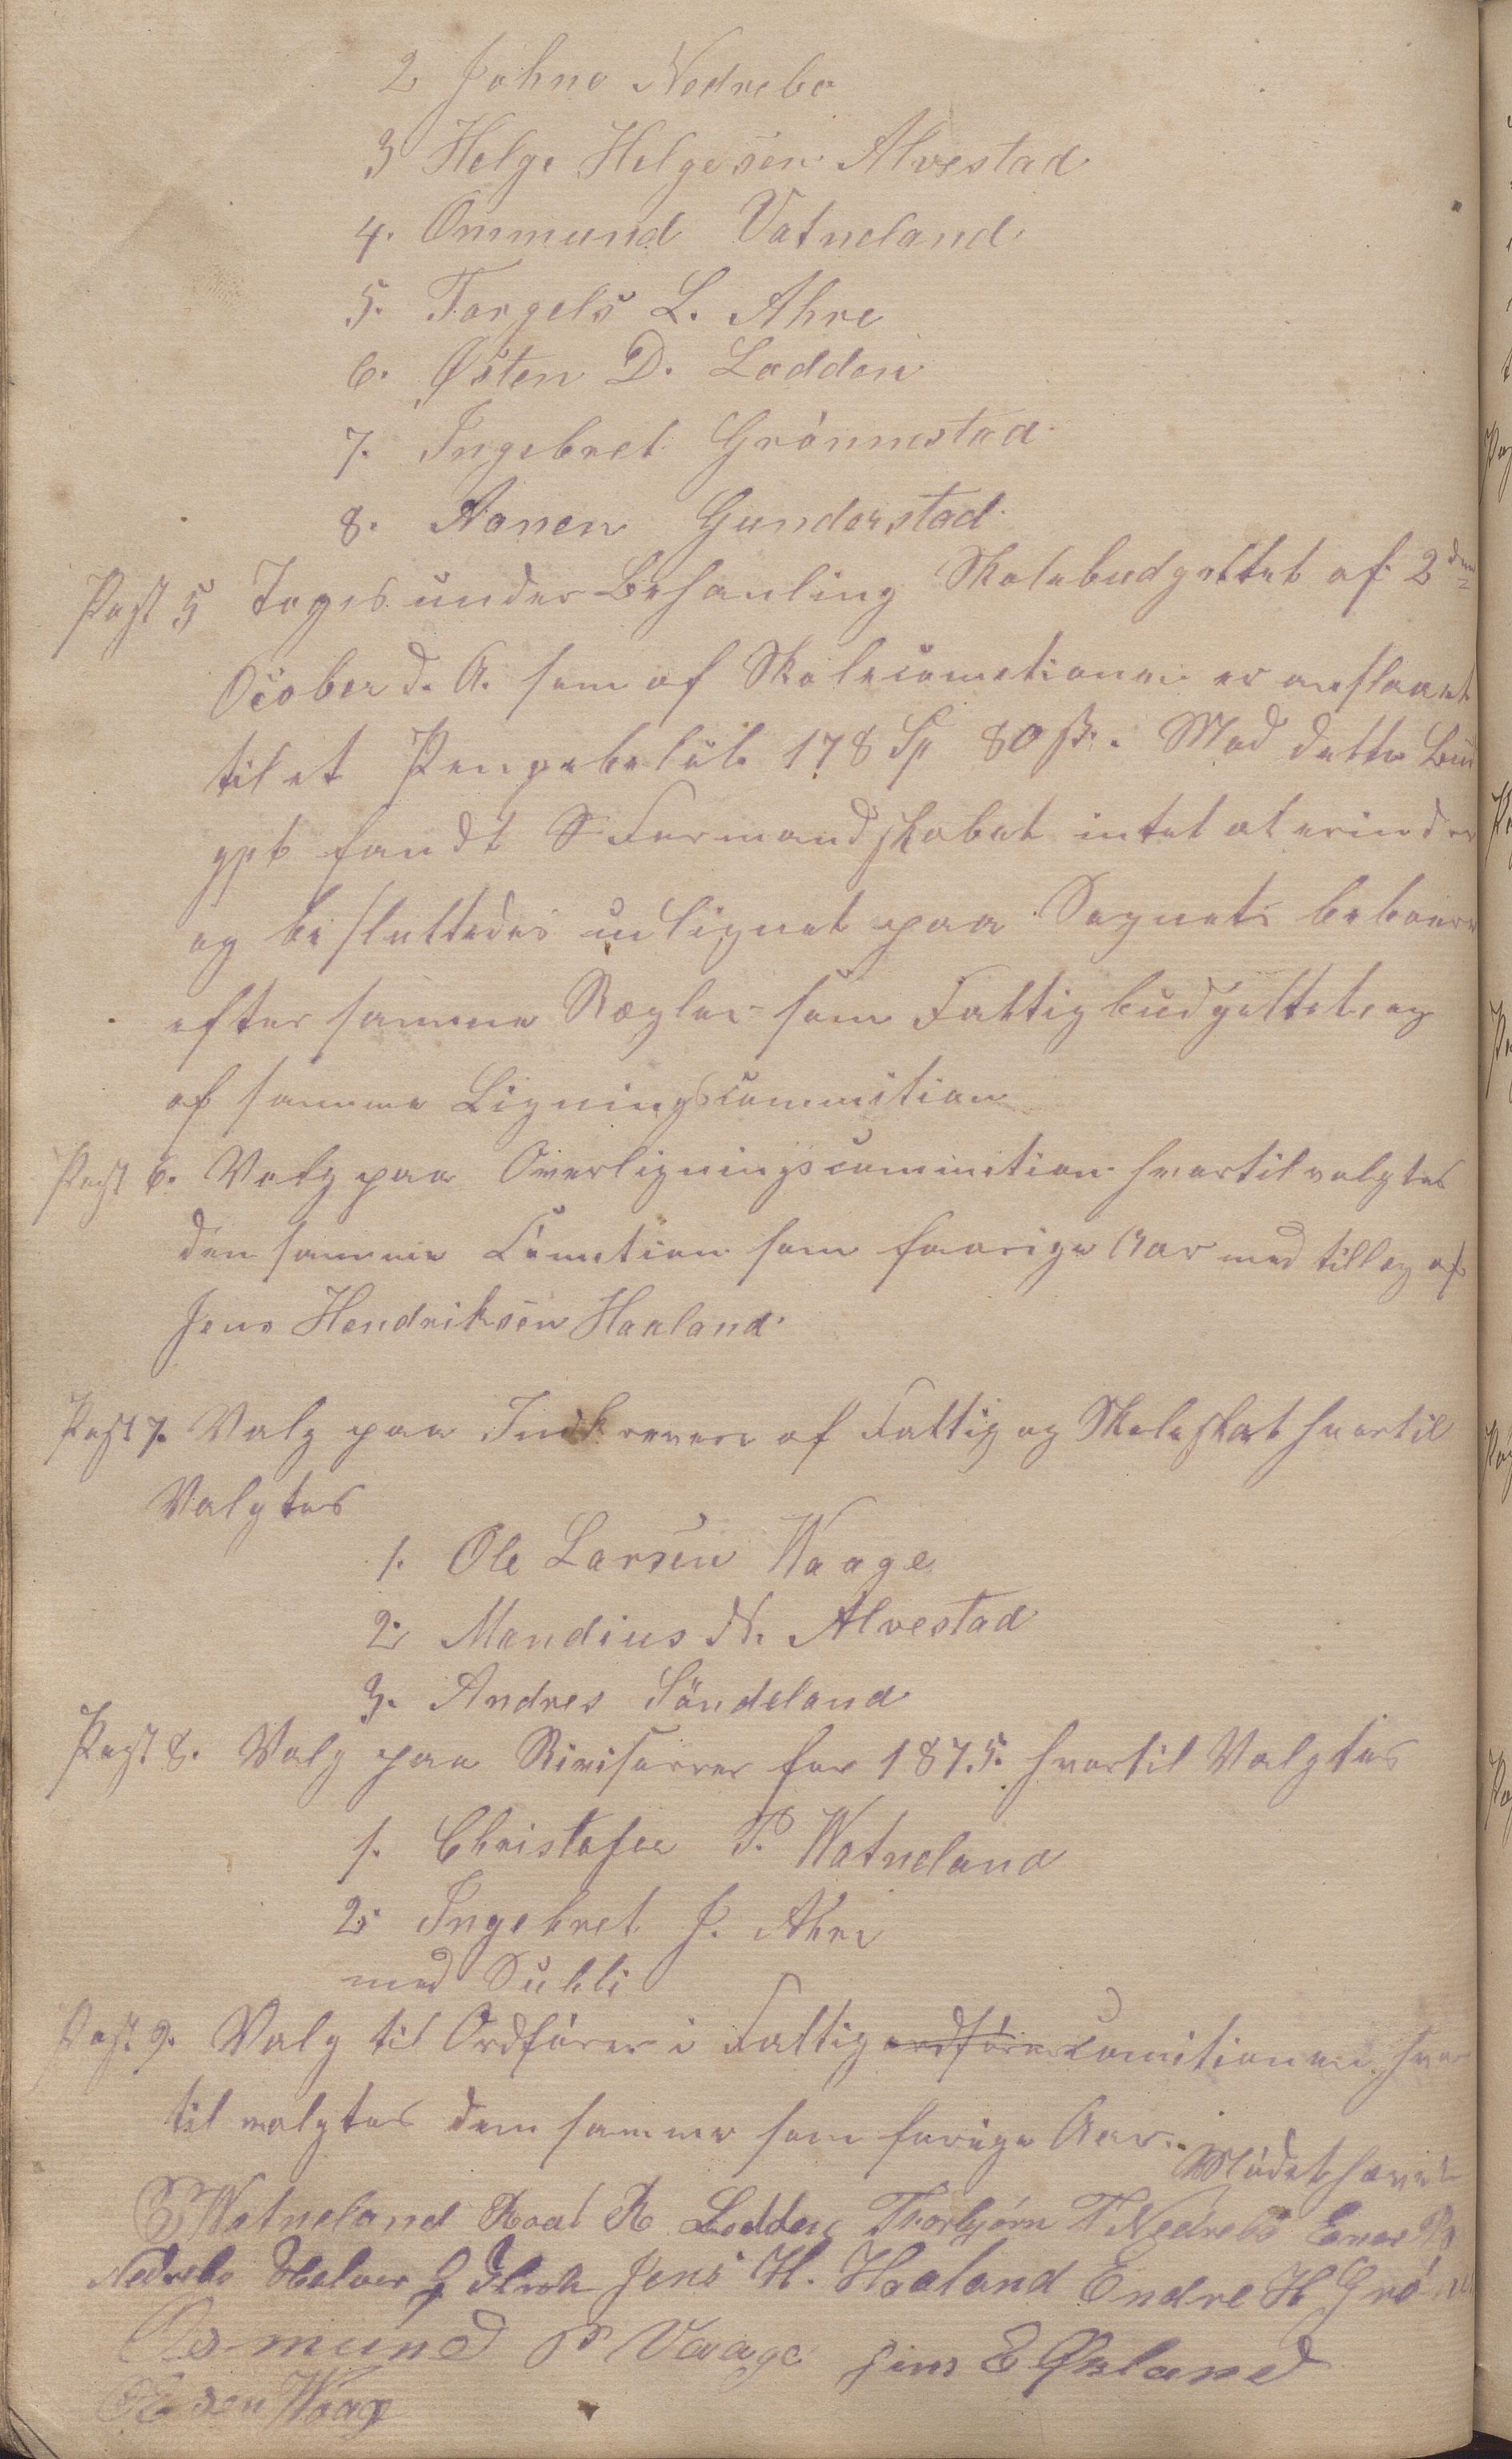 2 Johno Nedrebø
3 Helge Helgesen Alvestad
4. Ommund Vatneland
5. Torgels L. Ahre
6. Østen D. Lodden
7. Ingebret Grönnestad
8. Aanen Gunderstad
Post 5 Toges under Behanling Skolebudgettet af 2den
Ocober d. A. som af Skolecometionen er anslaaet
til et Pengebelüb 178 Sp 80 ß. Mod dette Bud
gpt fandt Formandskabet intet at erindre
og besluttedes udlignet paa Sognets beboere
efter samme Regler som Fattigbudgettet, og
af samme Ligningscommition
Post 6. Valg paa Overligningscommition hvortil valgtes
den samme Comition som forrige Aar med tillæg af
Jens Hendriksen Haaland.
Post 7. Valg paa Indkrevere af Fattig og Skoleskat hvortil
Valgtes
1. Ole Larsen Waage
2. Mandius N. Alvestad
3. Andres Söndeland
Post 8. Valg paa Revisorer for 1875. hvortil Valgtes
1. Christofer P. Watneland
2. Ingebret J. Ahre
med Suhli
Post 9. Valg til Ordförer i Fattig ordförer comitionen, hvor
til valgtes dem samme som forige Aar. Mödet hævet
P Watneland Roal R Lodden Thorbjörn T Nedrebö
Nedrebø Halvor Jens H. Haaland Endre H Grö
Osmund P Vaage Jens E Øsland
Waage